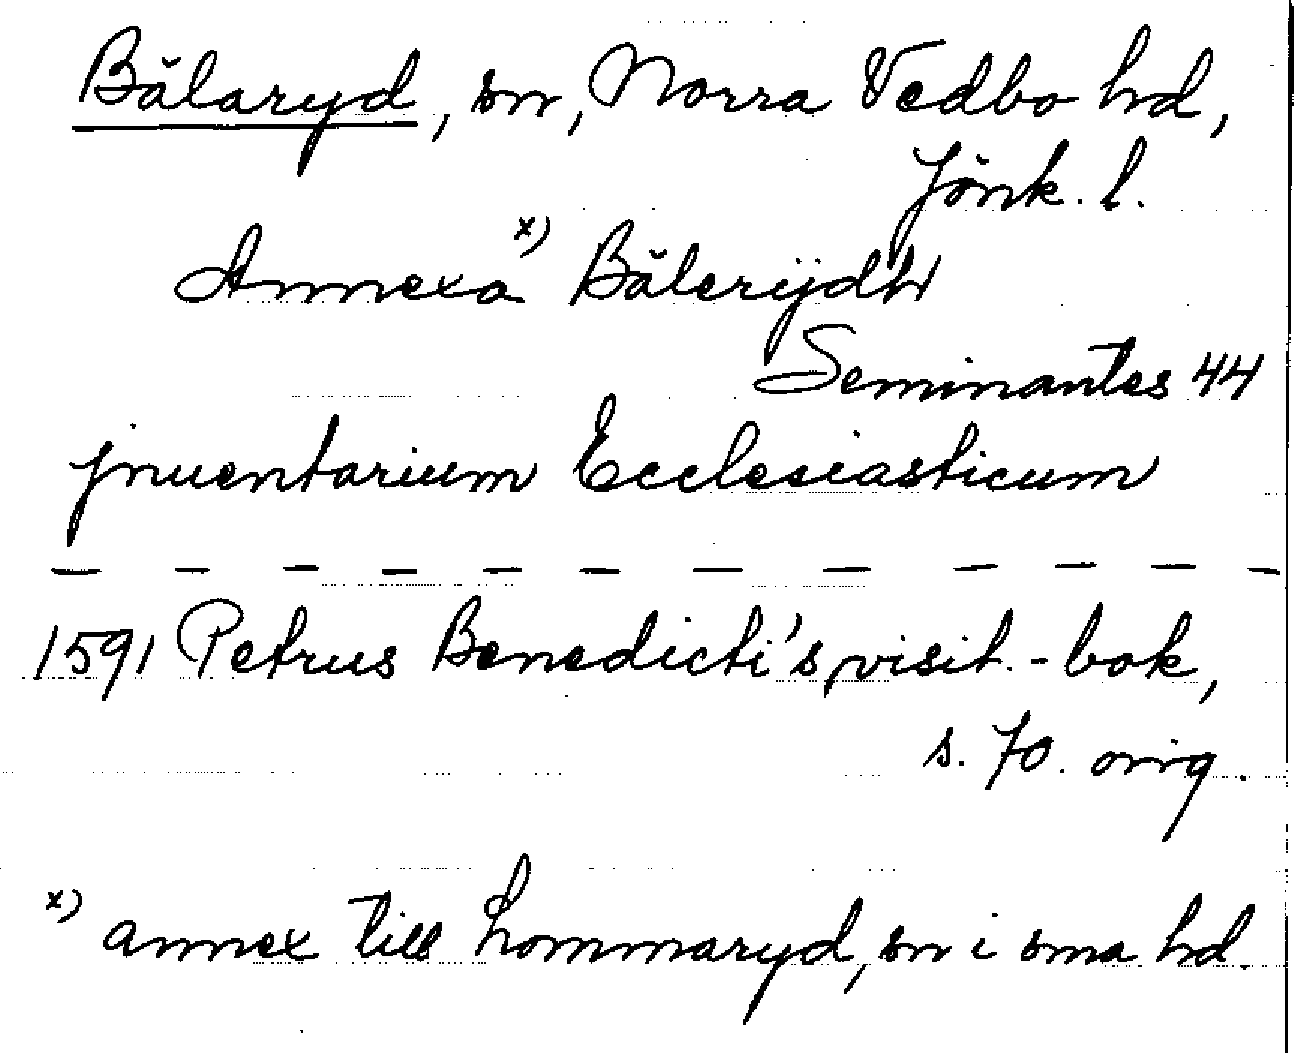 Bălaryd, sn, Norra Vedbo hd,
Jönk. l.
Annexa x) Bălerÿdh
Seminantes 44
jnuentarium Ecclesiasticum
— — — — — — — — — — — —
1591 Petrus Benedicti's visit.-bok,
s. 70. orig.
x) annex till Lommaryd, sn i sma hd.